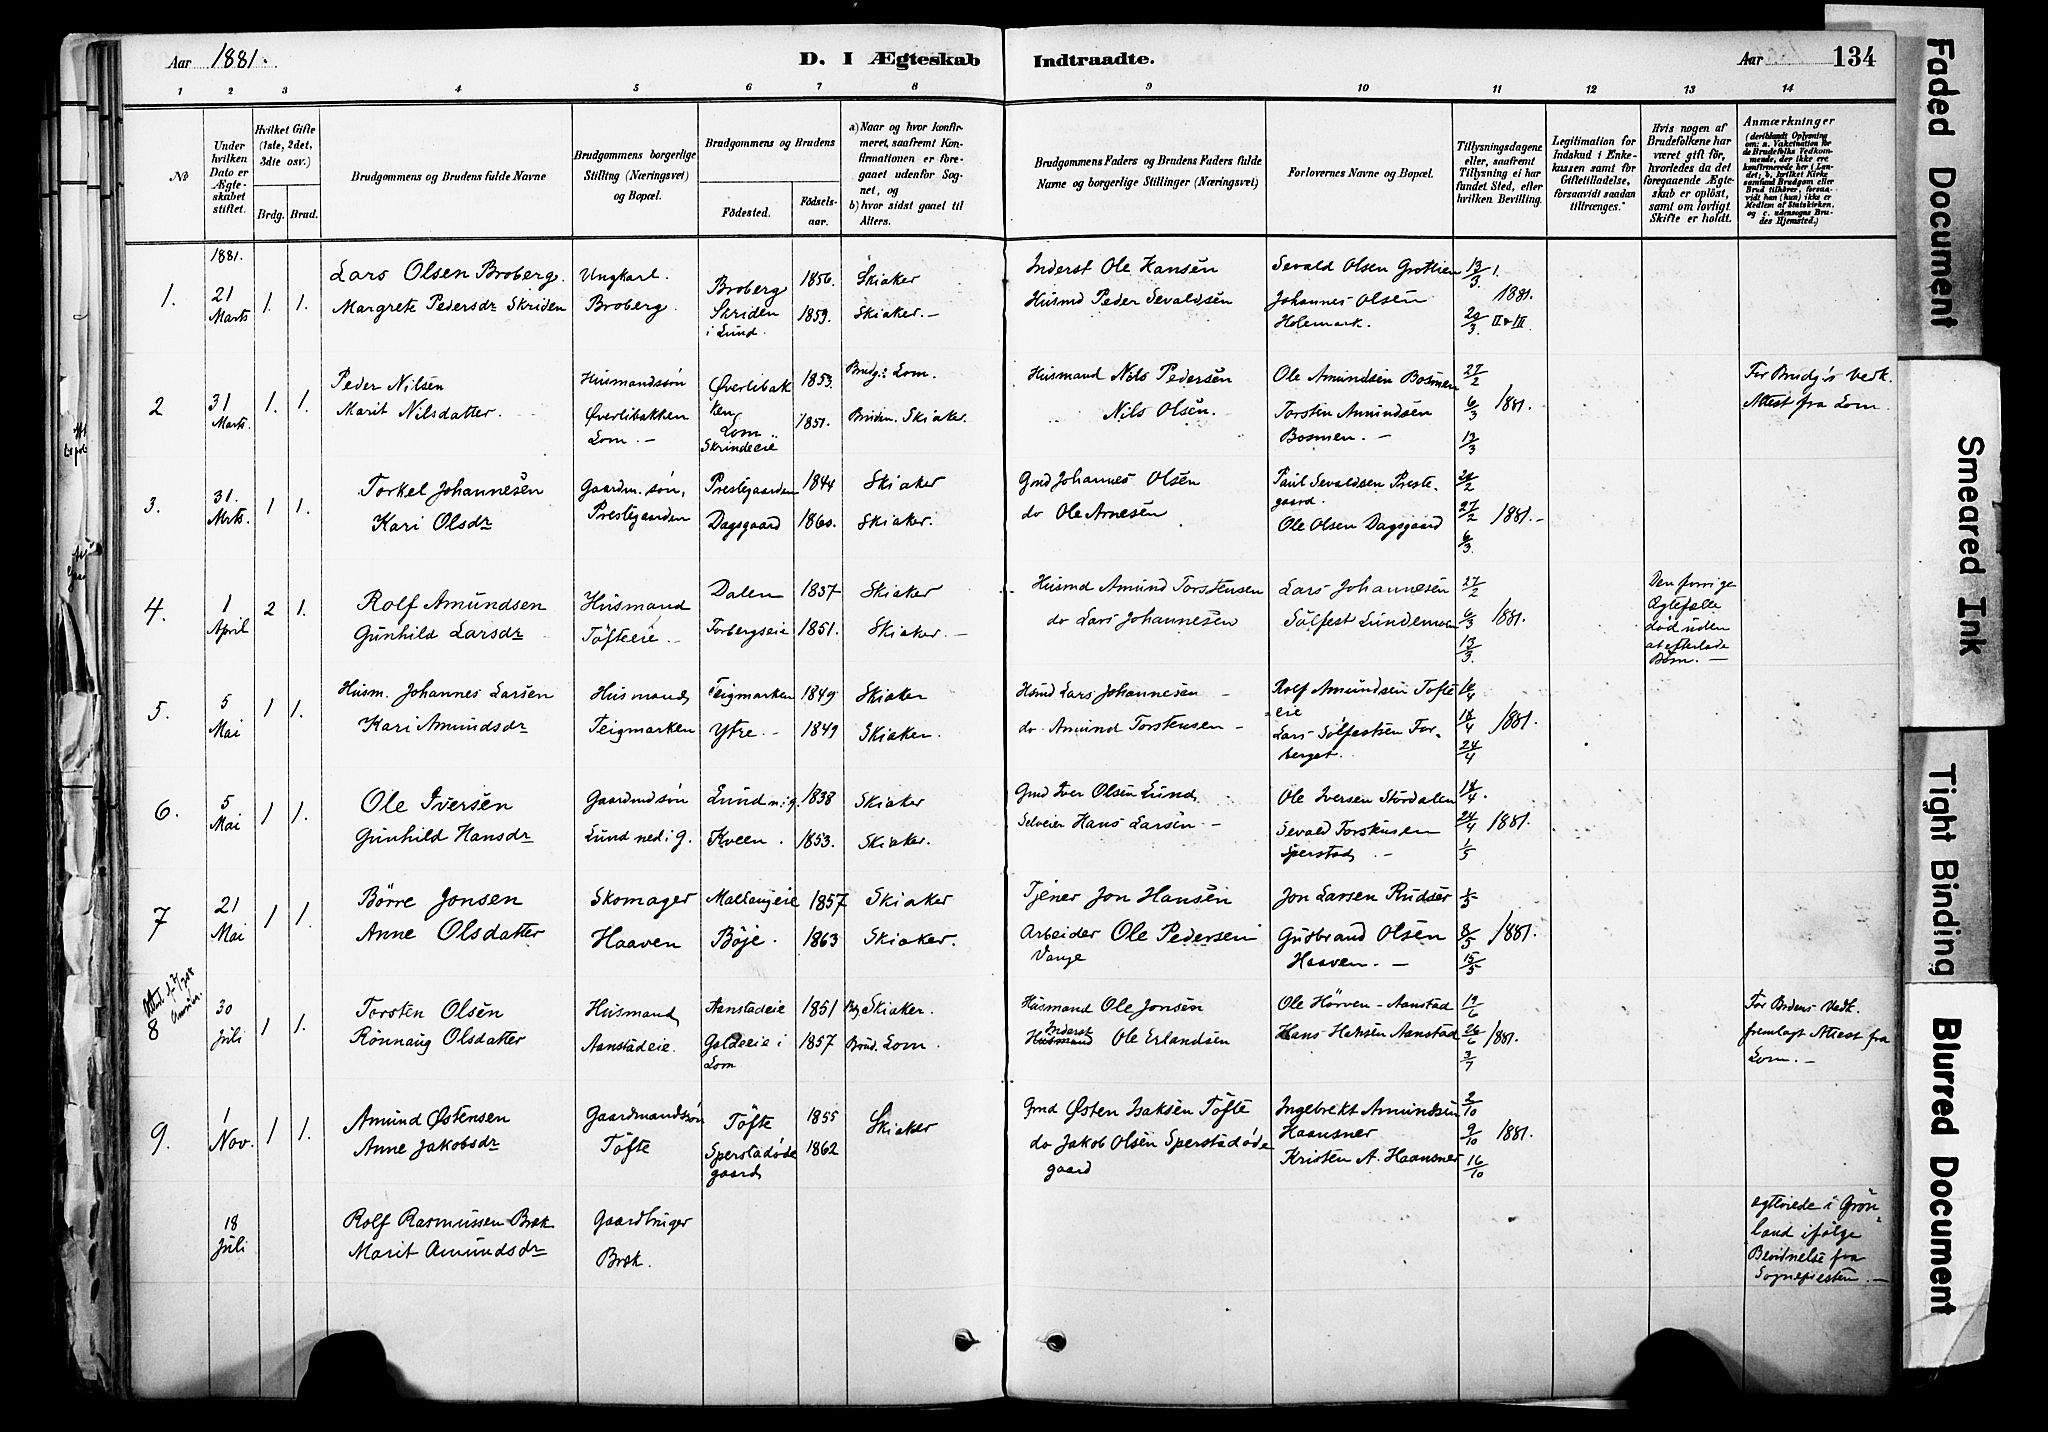 Aar 1881.
D. I Ægteskab Indtraadte.
Aar 134
1 2 3 4 5 6 7 8 9 10 11 12 13 14
No
Under hvilken Dato er Ægteskabet stiftet.
Hvilket Gifte (1ste, 2det, 3die osv.)
Brdg. Brud.
Brudgommens og Brudens fulde Navne
Brudgommens borgerlige Stilling (Næringsvei) og Bopæl.
Brudgommens og Brudens
Födested.
Födselsaar.
a) Naar og hvor konfirmeret, saafremt Konfirmationen er foregaaet udenfor Sognet, og
b) hvor sidst gaaet til Alters.
Brudgommens Faders og Brudens Faders fulde Navne og borgerlige Stillinger (Næringsvei)
Forlovernes Navne og Bopæl.
Tillysningsdagene eller, saafremt Tillysning ei har fundet Sted, efter hvilken Bevilling.
Legitimation for Indskud i Enkekassen samt for Giftetilladelse, forsaavidt saadan tiltrænges.
Hvis nogen af Brudefolkene har været gift för, hvorledes da det foregaaende Ægteskab er oplöst, samt om lovligt Skifte er holdt.
Anmærkninger
(deriblandt Oplysning om: a. Vakcination for de Brudefolks Vedkommende, der ikke ere konfirmerede her i Landet; b. hvilket Kirkesamfund Brudgom eller Brud tilhörer, forsaavidt han (hun) ikke er Medlem af Statskirken, og c. udensogns Brudes Hjemsted.)
1881.
1. 21 Marts 1. 1. Lars Olsen Broberg. Ungkarl. Broberg 1856. Skiaker Inderst Ole Hansen Sevald Olsen Grottien 13/3 I.
Margrete Pedersdr Skriden Broberg. Skriden i Lund. 1859. Skiaker.– Husmd Peder Sevaldsen Johannes Olsen Holemark. 1881. 20/3 II & III
2 31 Marts. 1. 1. Peder Nilsen Husmandssøn Øverlibakken Lom 1853. Brudg: Lom. Husmand Nils Pedersen Ole Amundsen Bosmen 27/2 For Brudg's Vedk.
Marit Nilsdatter. Øverlibakken Lom.– Skrindeeie 1851. Bruden. Skiaker. Nils Olsen. Torsten Amundsen Bosmen.– 6/3 1881. 13/3 Attest fra Lom.
3. 31. Mrts. 1 1. Torkel Johannesen Gaardm. søn, Prestegaarden 1844 Skiaker Gmd Johannes Olsen Paul Sevaldsen Prestegaard. 20/2
Kari Olsdr Prestegaarden Dagsgaard 1860. Skiaker. do Ole Arnesen Ole Olsen Dagsgaard 27/2 1881.– 6/3
4. 1 April 2 1. Rolf Amundsen Husmand Dalen 1837 Skiaker Husmd Amund Torstensen Lars Johannesen 27/2 Den forrige Ægtefælle død uden at efterlade Børn.–
Gunhild Larsdr Töfteeie.– Forbergseie 1851. Skiaker.– do Lars Johannesen Sølfest Lundemoen 6/3 1881. 13/3
5. 5 Mai 1 1. Husm. Johannes Larsen Husmand Teigmarken 1849 Skiaker Hsmd Lars Johannesen – Rolf Amundsen Tofteeie 10/4
Kari Amundsdr Teigmarken Ytre.– 1849 Skiaker. do. Amund Torstensen – Lars Sølfestsen Forberget. 18/4 1881. 24/4
6. 5 Mai 1 1. Ole Iversen Gaardmdsøn Lund n. i g. 1838 Skiaker Gmd Iver Olsen Lund Ole Iversen Stordalen 14/4.
Gunhild Hansdr Lund ned i g. Kveen. 1853. Skiaker. Selveier Hans Larsen – Sevald Torstensen Sperstad.– 24/4 1881. 1/5
7 21 Mai 1 1. Börre Jonsen Skomager Mallungeie 1857 Skiaker Tjener Jon Hansen Jon Larsen Rudser 1/5
Anne Olsdatter Haaven Böje. 1863 Skiaker. Arbeider Ole Pedersen Vange Gudbrand Olsen Haaven.– 8/5 1881. 15/5
8 30 Juli 1 1. Torsten Olsen Husmand Aanstadeie 1851 Bg. Skiaker. Husmand Ole Jonsen Ole Hörven – Aanstad 19/6 For Brdens Vedk.
Rönnaug Olsdatter Aanstadeie. Galdeeie i Lom 1857 Brud. Lom. Husmand Inderst Ole Erlandsen Hans Hansen Aanstad 26/6 1881. 3/7 fremlagt Attest fra Lom.–
9. 1 Nov. 1 1. Amund Østensen Gaardmandssøn Töfte 1855 Skiaker Gmd Østen Isaksen Töfte Ingebrekt Amundsen Haansner 2/10
Anne Jakobsdr Töfte Sperstadødegaard 1862 do Jakob Olsen Sperstadødegaard Kristen A. Haansner 9/10 1881. 16/10
18 Juli Rolf Rasmussen Bræk Gaardbruger egteviede i Grönland ifølge
Marit Amundsdr Bræk. Bevidnelse fra Sognepresten.–
Faded Document
Smeared Ink
Tight Binding
Blurred Document